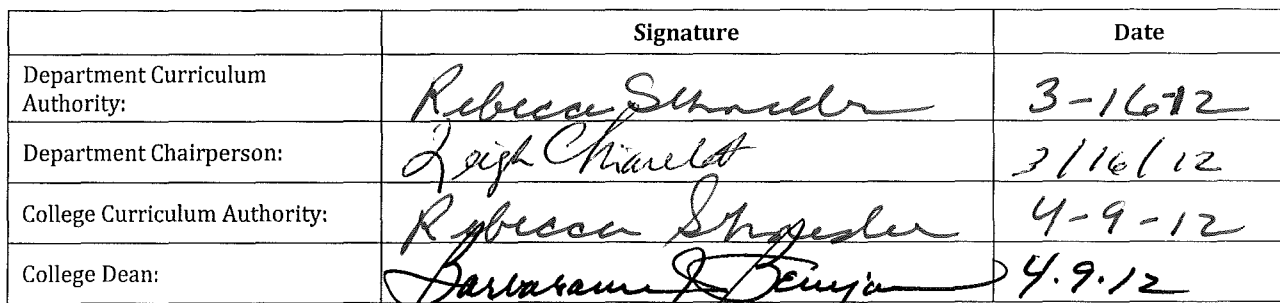 Signature Date
Department Curriculum
Authority: Rebecca Schroeder 3-16-12
Department Chairperson: Leigh 3/16/12
College Curriculum Authority: Rebecca Schroeder 4-9-12
College Dean: 4.9.12